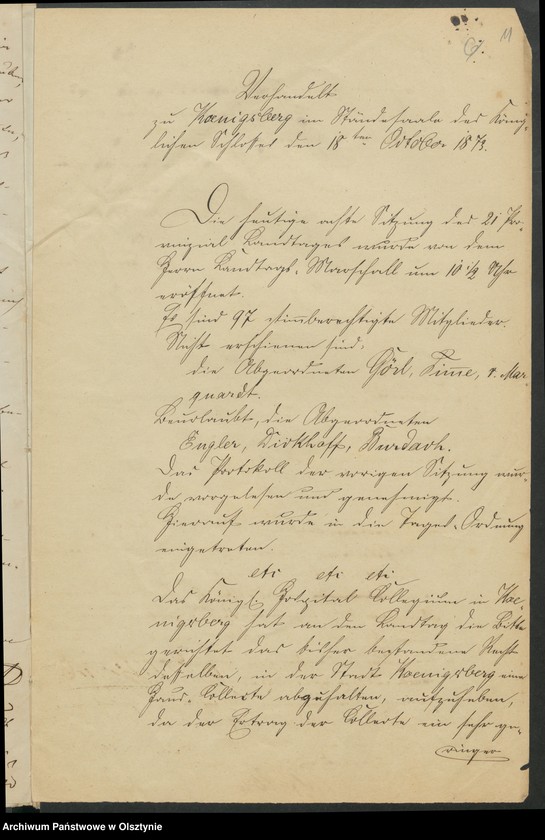 11
9.
Verhandelt
zu Koenigsberg im Ständesaale des König-
lichen Schlosses den 18ten October 1873.
Die heutige achte Sitzung des 21 Pro-
vinzial Landtages wurde von dem
Herrn Landtags-Marschall um 10 1/2 Uhr
eröffnet.
Es sind 97 stimmberechtigte Mitglieder.
Nicht erschienen sind,
die Abgeordneten Görl, Timme, v. Mar-
quardt.
Beurlaubt, die Abgeordneten
Engler, Dirkhoff, Burdach.
Das Protokoll der vorigen Sitzung wur-
de vorgelesen und genehmigt.
Hierauf wurde in die Tages-Ordnung
eingetreten.
etc etc etc
Das Königl. Hospital Collegium in Koe-
nigsberg hat an den Landtag die Bitte
gerichtet das bisher bestandene Recht
desselben, in der Stadt Koenigsberg eine
Haus-Collecte abzuhalten, aufzuheben,
da der Ertrag der Collecte ein sehr ge-
ringer
Archiwum Państwowe w Olsztynie